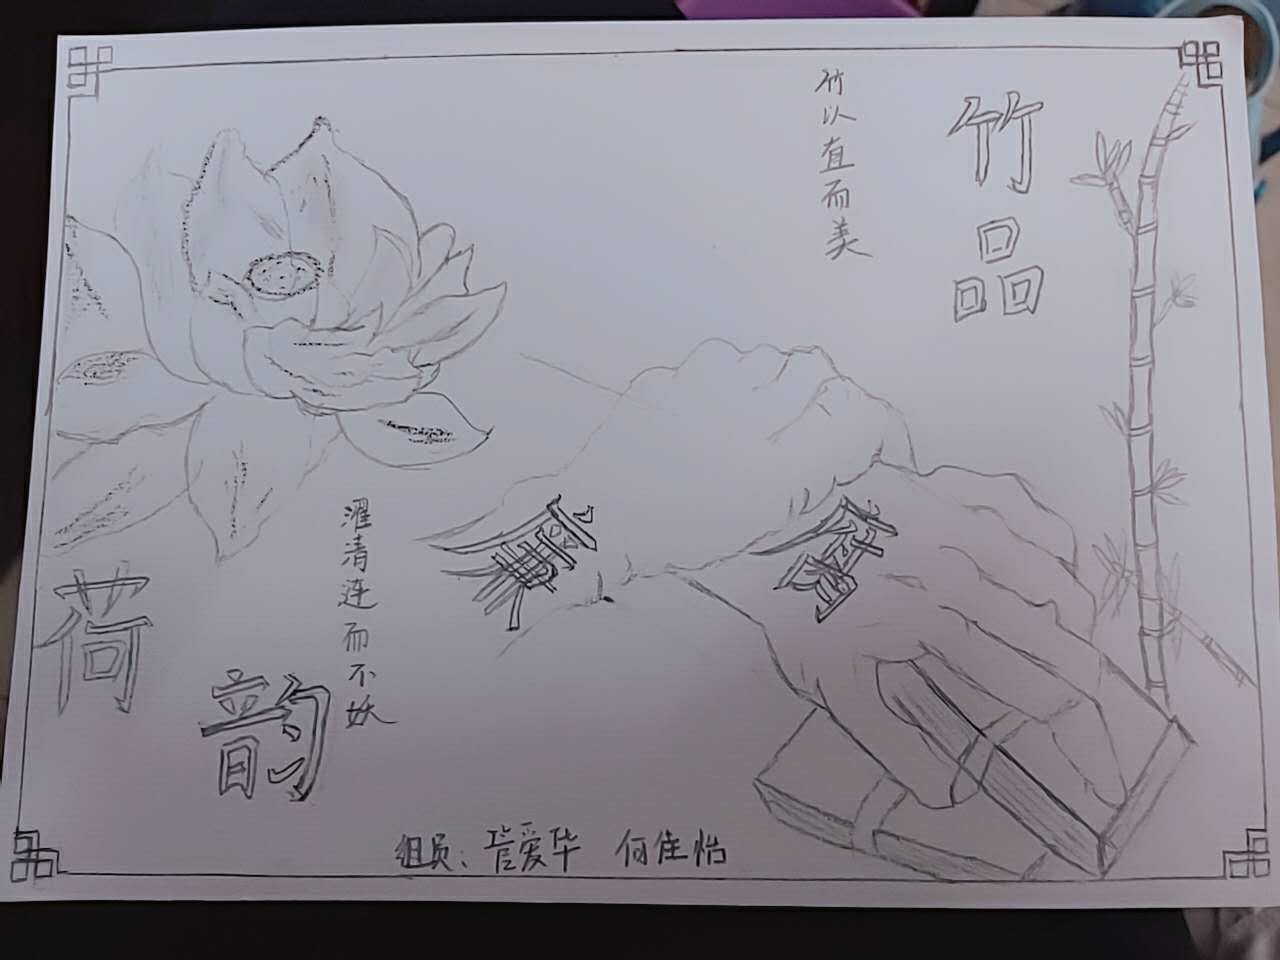 竹品
竹以直而美
荷韵
濯清涟而不妖
廉
组员：管爱华 何佳怡